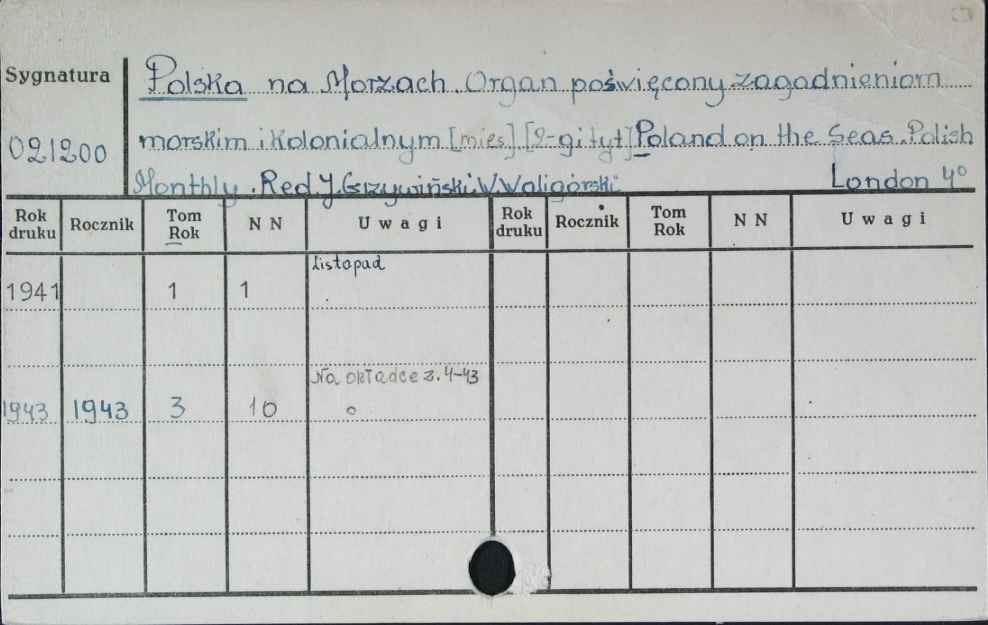 Sygnatura
Polska na Morzach. Organ poświęcony zagadnieniom
021200
morskim i kolonialnym [mies] [2-gi tyt] Poland on the Seas. Polish
Monthly. Red. J. Grzywiński. W. Waligórski London 4°
Rok druku Rocznik Tom Rok N N Uwagi Rok druku Rocznik Tom Rok N N Uwagi
listopad
1941 1 1
Na okładce z. 4-43
1943 1943 3 10